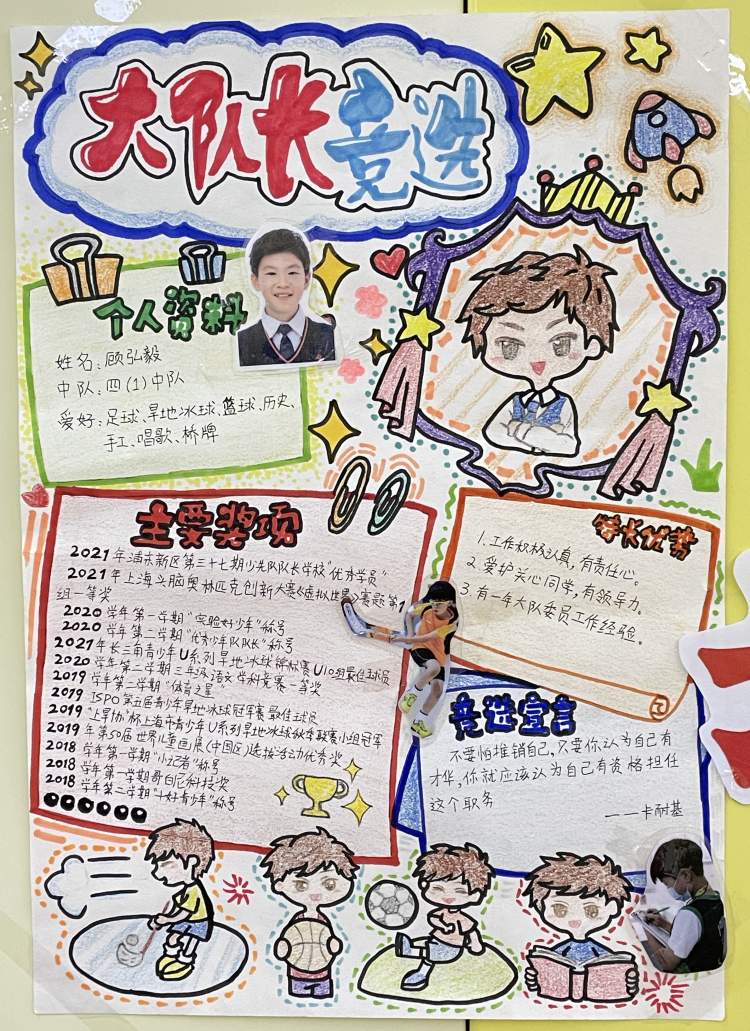 大队长竞选
个人资料
姓名：顾弘毅
中队：四(1)中队
爱好：足球、旱地冰球、篮球、历史、
手工、唱歌、桥牌
主要奖项
2021年浦东新区第三十七期少先队队长学校“优秀学员”
2021年上海头脑奥林匹克创新大赛《虚拟世界》赛题第1
组一等奖
2020学年第一学期“实验好少年”称号
2020学年第二学期“优秀少年队队长”称号
2021年长三角青少年U系列旱地冰球锦标赛U10组最佳球员
2020学年第二学期三年级语文学科竞赛一等奖
2019学年第二学期“体育之星”
2019 ISPO第五届青少年旱地冰球冠军赛最佳球员
2019“上旱协”杯上海市青少年U系列旱地冰球秋季联赛小组冠军
2019年第50届世界儿童画展(中国区)选拔活动优秀奖
2018学年第一学期“小记者”称号
2018学年第一学期哥白尼科技奖
2018学年第二学期“十好青少年”称号
特长优势
1.工作积极认真，有责任心。
2.爱护关心同学，有领导力。
3.有一年大队委员工作经验。
竞选宣言
不要怕推销自己，只要你认为自己有
才华，你就应该认为自己有资格担任
这个职务
——卡耐基